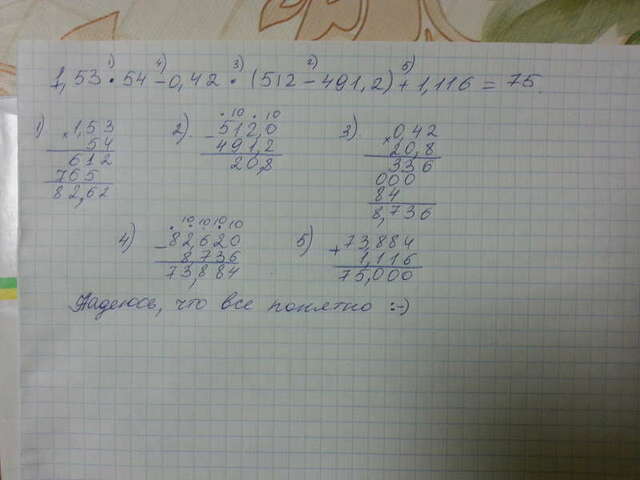 1) 4) 3) 2) 5)
1,53 · 54 - 0,42 · (512 - 491,2) + 1,116 = 75.
1) × 1,53
54
612
765
82,62
2) · 10 · 10
- 512,0
491,2
20,8
3) × 0,42
20,8
336
000
84
8,736
4) · 10 10 10 10
- 82,620
8,736
73,884
5) + 73,884
1,116
75,000
Надеюсь, что все понятно :-)